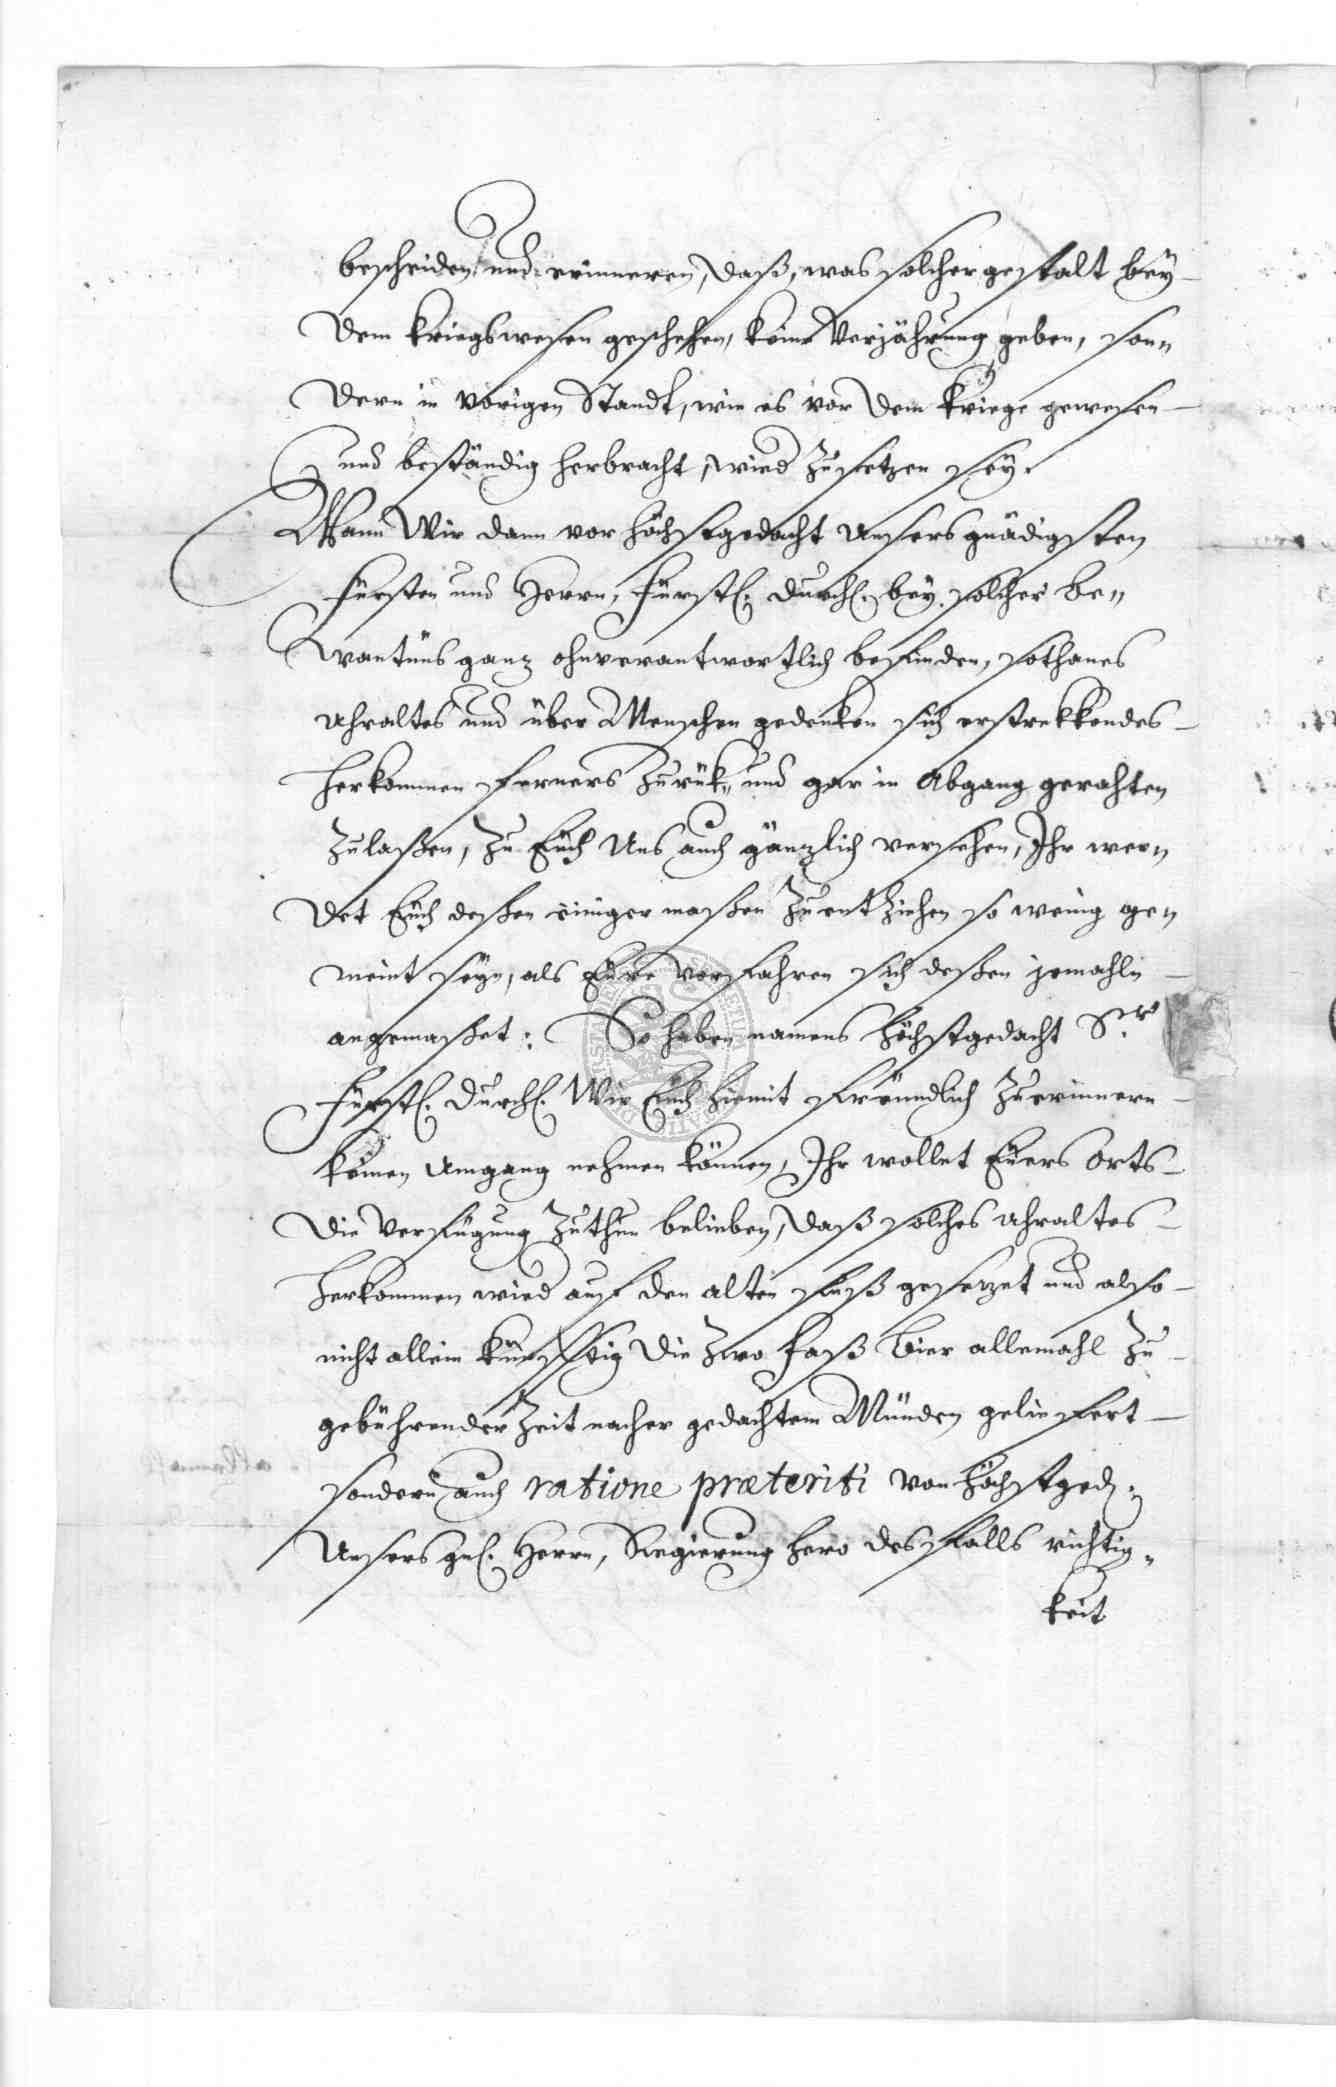 bescheiden, und erinneren, daß, was solcher gestalt bey
dem kriegswesen geschehen, keine Verjährung geben, son„
dern in vorigen Standt, wie es vor dem kriege gewesen
und beständig herbracht, wied zusetzen sey.
Wann Wir dann vor höchstgedacht Unsers gnädigsten
Fürsten und Herrn, Fürstl. Durchl. bey solcher be„
wantnüs ganz ohnverantwortlich befinden, sothanes
uhraltes und über Menschen gedenken sich erstrekkendes
herkommen ferners zurük„ und gar in Abgang gerahten
zulaßen, zu Euch Uns auch gänzlich versehen, Ihr wer„
det Euch deßen einiger maßen zuentziehen so wenig ge„
meint seyn, als Eure Vorfahren sich deßen jemahln
angemaßet: So haben namens höchstgedacht Sr.
Fürstl. Durchl. Wir Euch hiemit freundlich zuerinnern
keinen Umgang nehmen können, Ihr wollet Euers Orts
die Verfügung zuthun belieben, daß solches uhraltes
herkommen wied auf den alten fuß gesezet und also
nicht allein künfftig die zwo Faß bier allemahl zu
gebührender Zeit nacher gedachtem Münden geliefert
sondern auch ratione præteriti von höchstged.
Unsers gnl. Herrn, Regierung hero desfalls richtig„
keit